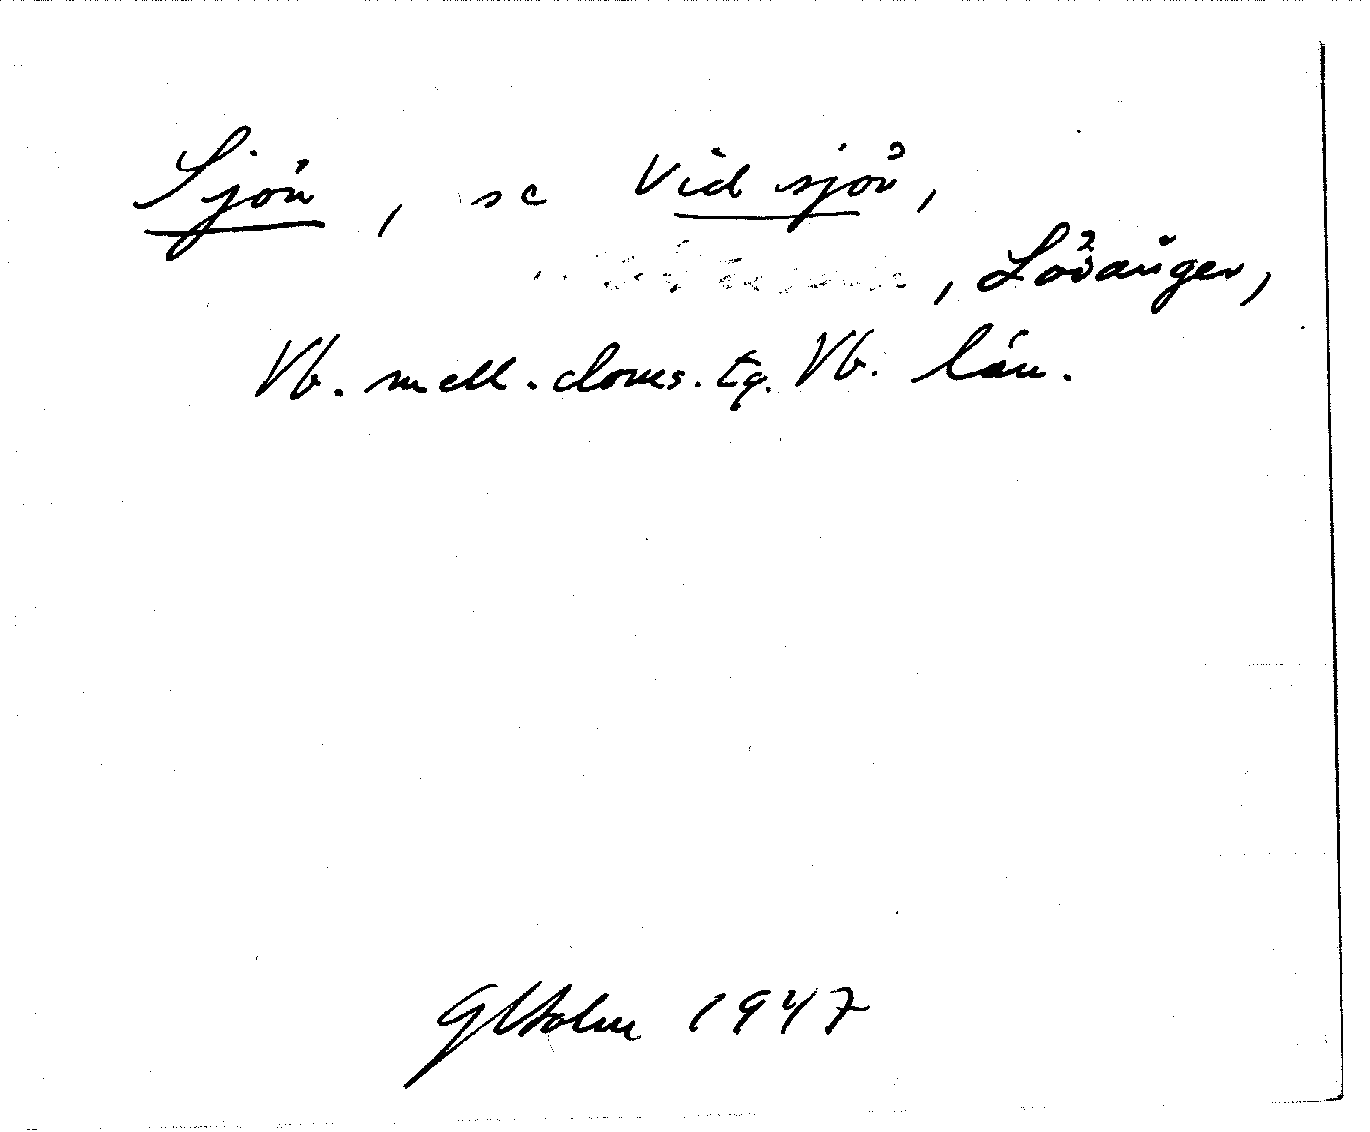 Sjön, se Vidsjön,
, Lövånger,
Vb. mell. doms. tg. Vb. län.
GHolm 1947